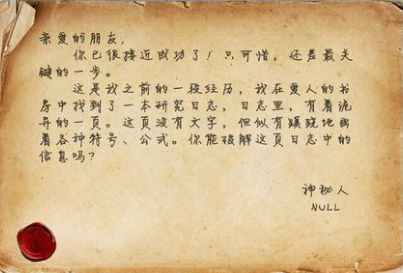 亲爱的朋友，
你已很接近成功了！只可惜，还差最关
键的一步。
这是我之前的一段经历，我在爱人的书
房中找到了一本研究日志，日志里，有着诡
异的一页。这页没有文字，但似有蹊跷地画
着各种符号、公式。你能破解这页日志中的
信息吗？
神秘人
NULL